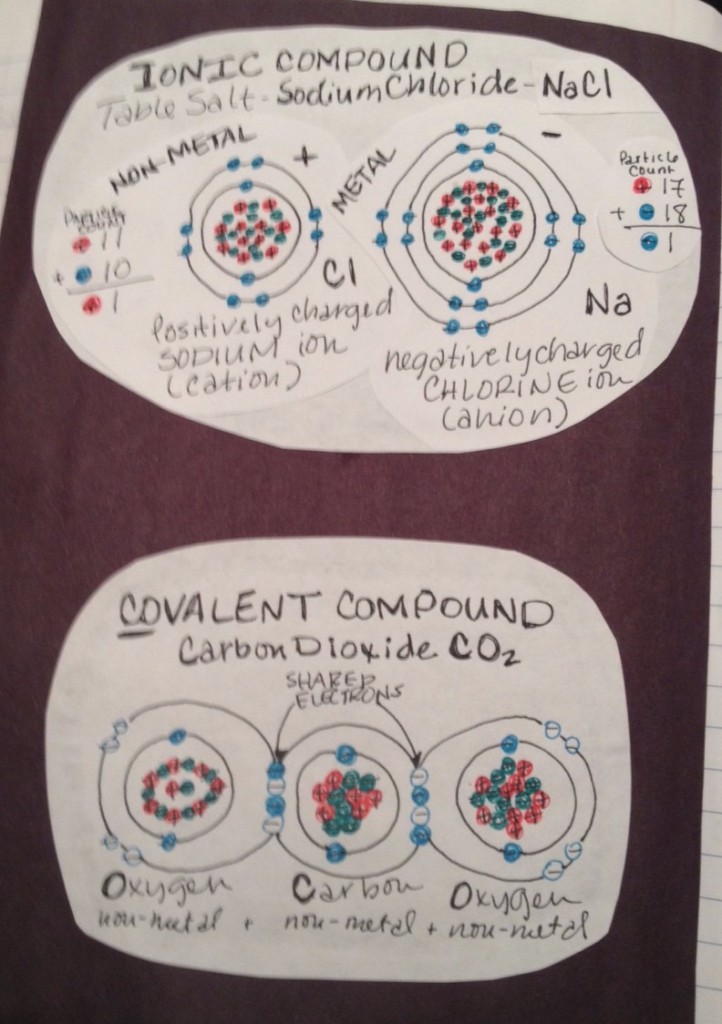 IONIC COMPOUND
Table Salt - Sodium Chloride - NaCl
NON-METAL
+
Particle Count
+ 11
+ - 10
+ 1
Cl
Positively charged
SODIUM ion
(cation)
METAL
-
Particle
Count
+ 17
+ - 18
- 1
Na
negatively charged
CHLORINE ion
(anion)
COVALENT COMPOUND
Carbon Dioxide CO₂
SHARED
ELECTRONS
Oxygen Carbon Oxygen
non-metal + non-metal + non-metal